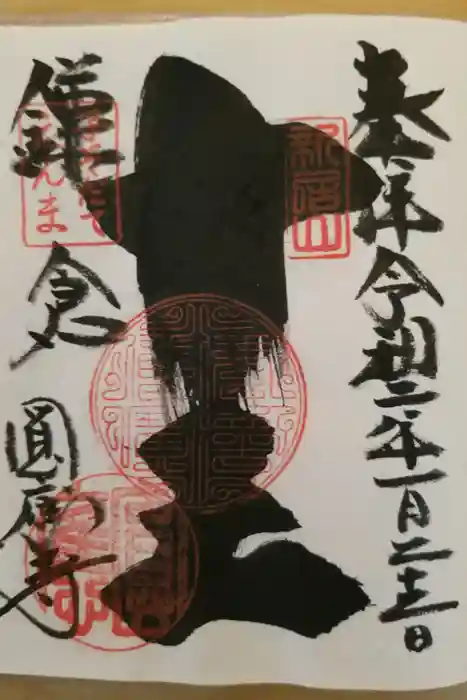 奉拝 令和二年一月二十三日
新居山
十王
えんま
鎌倉 圓應寺